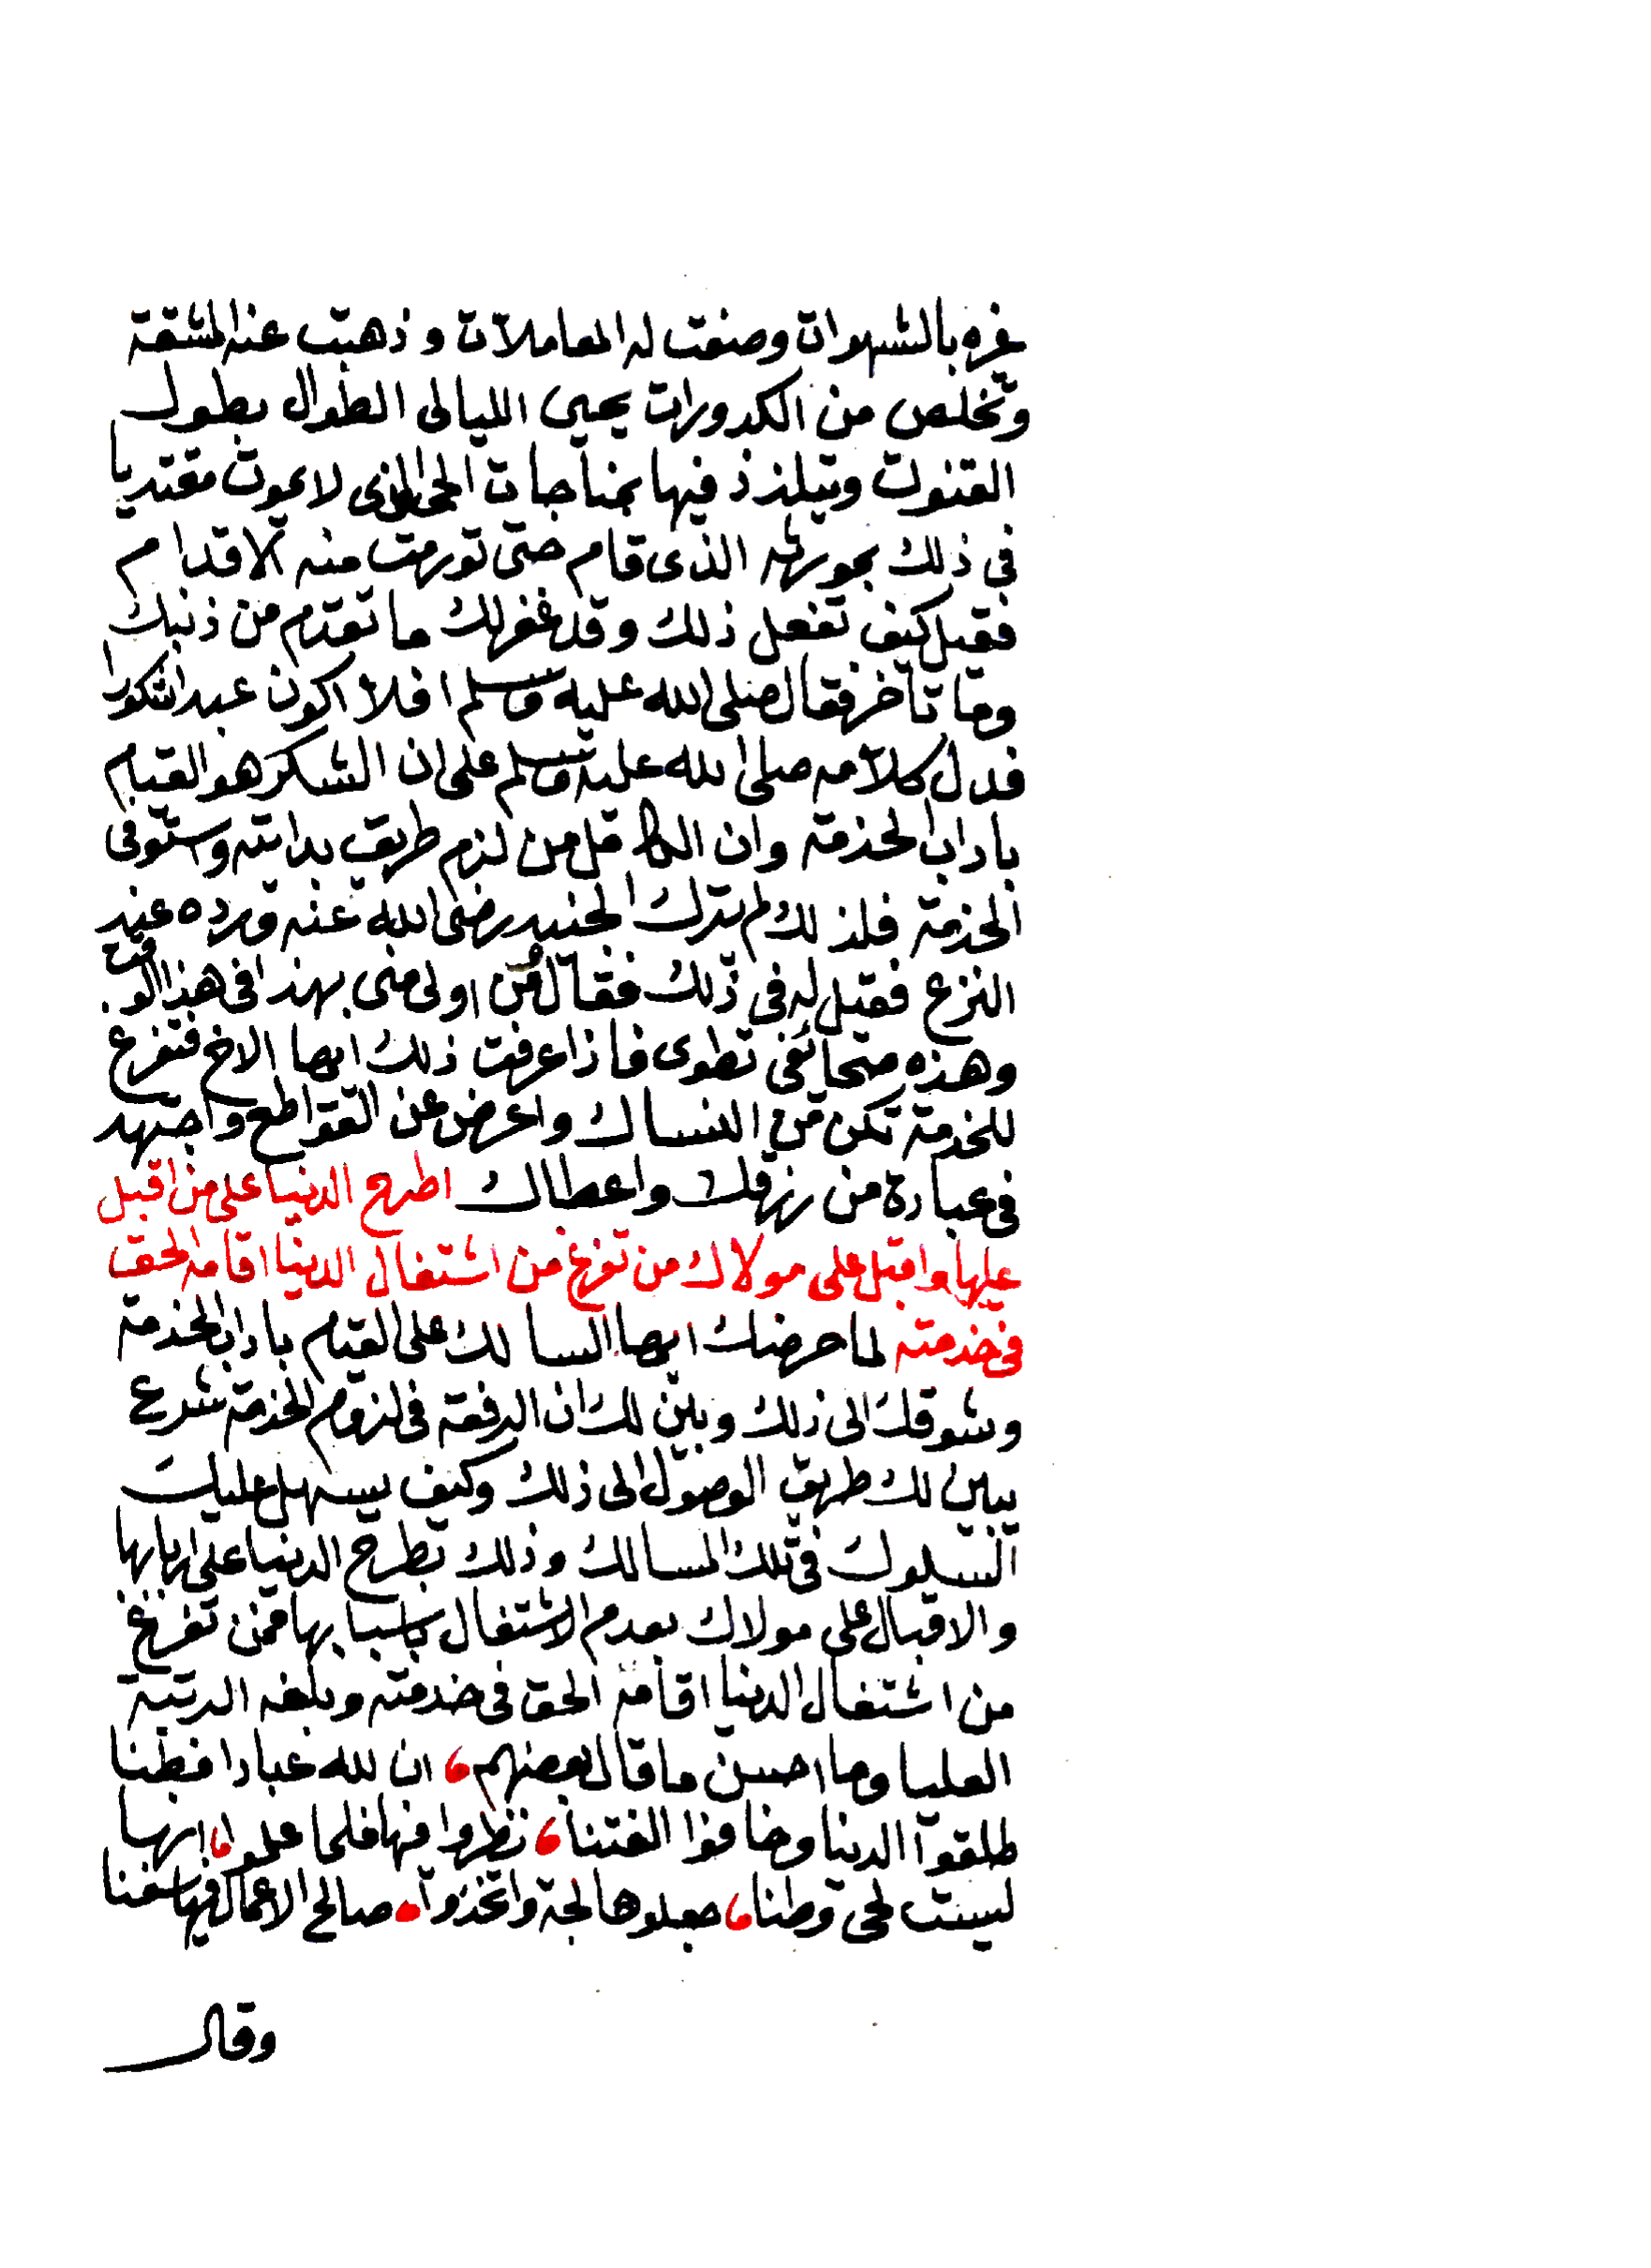 غره بالشهوات وصفت له المعاملات وذهبت عنه المشقة
وتخلص من الكدورات يحيى الليالى الطوال بطول
القنوت ويتلذذ فيها بمناجات الحى الذى لا يموت مقتديا
فى ذلك بمورثه الذى قام حتى تورمت منه الاقدام
فقيل كيف تفعل ذلك وقد غفر لك ما تقدم من ذنبك
وما تأخر فقال صلى الله عليه وسلم افلا اكون عبدا شكورا
فدل كلامه صلى الله عليه وسلم على ان الشكر هو القيام
باداب الخدمة وان الكامل من لزم طريق بدايته واستوفى
الخدمة فلذلك لم يترك الجنيد رضى الله عنه ورده عند
النزع فقيل له فى ذلك فقال من اولى منى بهذا فى هذا الوقت
وهذه صحائفى تطوى فاذا عرفت ذلك ايها الاخ فتفرغ
للخدمة تكن من النساك واعرض عن القواطع واجتهد
فى عبادة من رزقك واعطاك اطرح الدنيا على من اقبل
عليها واقبل على مولاك من تفرغ من اشتغال الدنيا اقامه الحق
فى خدمته لما حرضك ايها السالك على القيام باداب الخدمة
وشوقك الى ذلك وبين لك ان الرفعة فى لزوم الخدمة شرع
يبين لك طريق الوصول الى ذلك وكيف يسهل عليك
السلوك فى تلك المسالك وذلك بطرح الدنيا على اربابها
والاقبال على مولاك بعدم الاشتغال باسبابها فمن تفرغ
من اشتغال الدنيا اقامه الحق فى خدمته وبلغه الرتبة
العليا وما احسن ما قال بعضهم ، ان لله عبادا فطنا
طلقوا الدنيا وخافوا الفتنا ، نظروا فيها فلما علموا ، انها
ليست لحى وطنا ، جعلوها لجة واتخذوا ، صالح الاعمال فيها سفنا
وقال